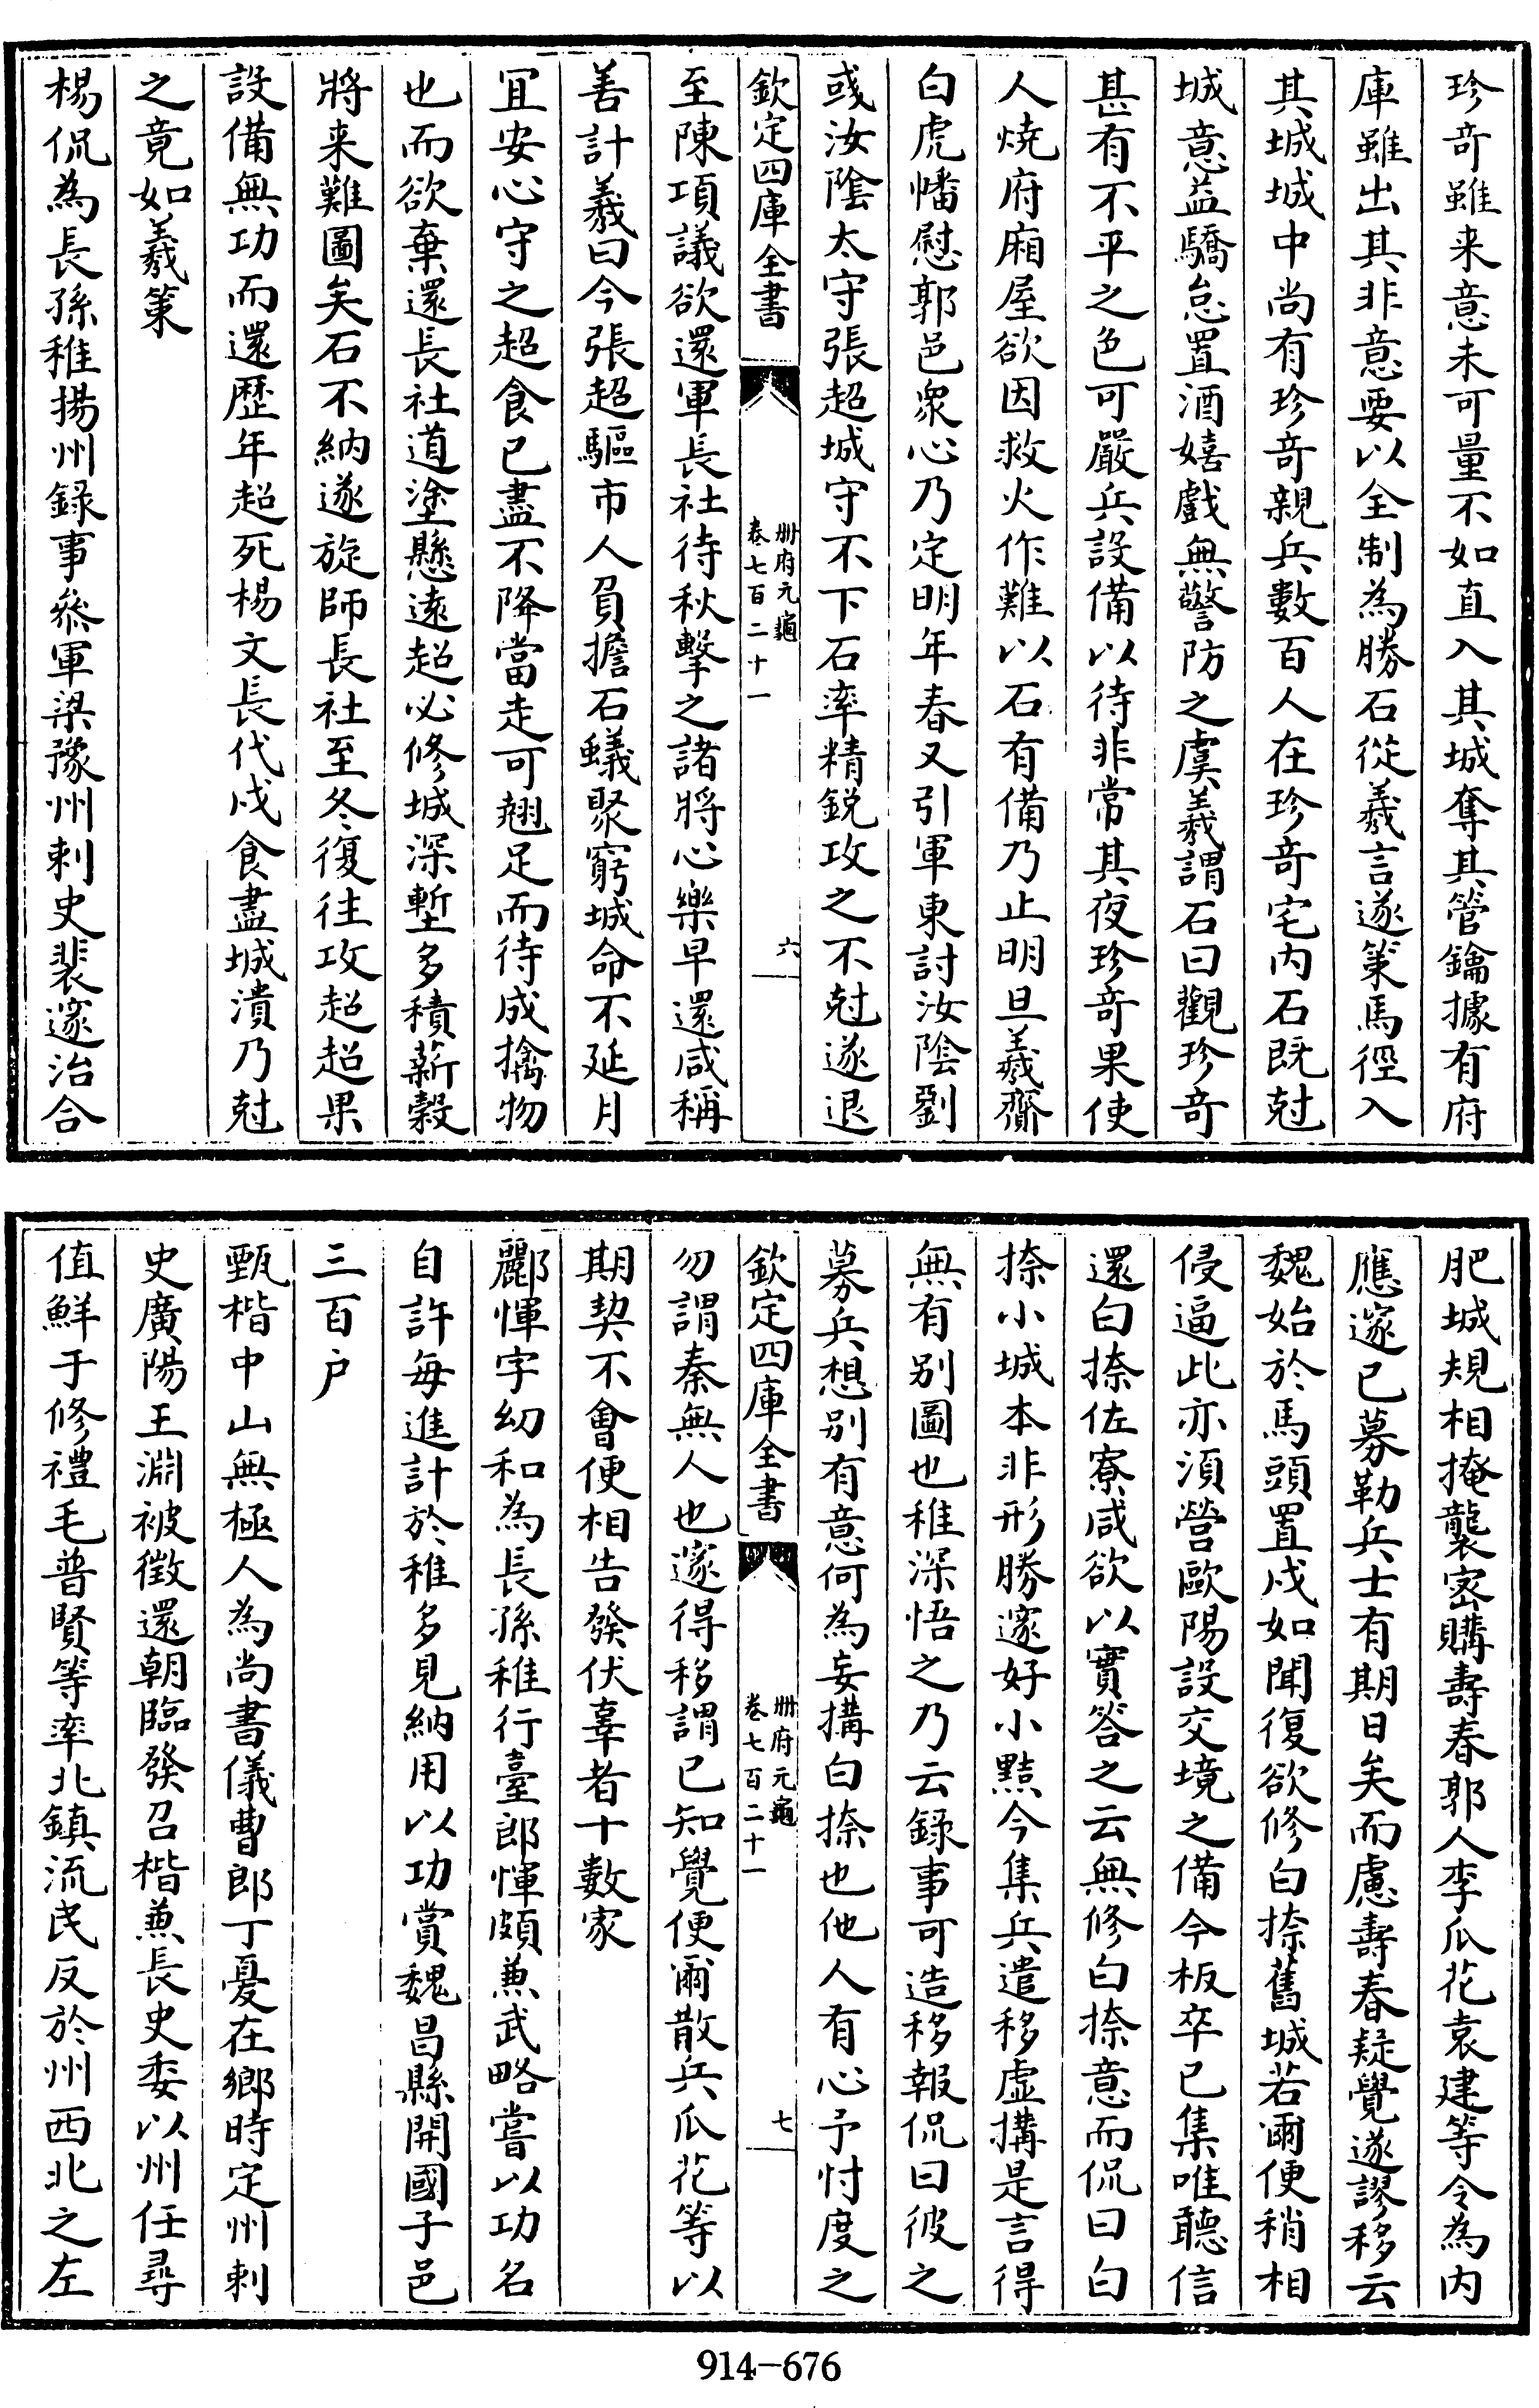 珍奇雖来意未可量不如直入其城奪其管鑰據有府
庫雖出其非意要以全制為勝石從羲言遂策馬徑入
其城城中尚有珍奇親兵數百人在珍奇宅内石既尅
城意益驕怠置酒嬉戲無警防之虞羲謂石曰觀珍奇
甚有不平之色可嚴兵設備以待非常其夜珍奇果使
人燒府廂屋欲因救火作難以石有備乃止明旦羲齎
白虎幡慰郭邑衆心乃定明年春又引軍東討汝隂劉
彧汝隂太守張超城守不下石率精鋭攻之不尅遂退
欽定四庫全書
册府元龜
卷七百二十一
六
至陳項議欲還軍長社待秋擊之諸將心樂早還咸稱
善計羲曰今張超驅市人負擔石蟻聚窮城命不延月
冝安心守之超食已盡不降當走可翹足而待成擒物
也而欲棄還長社道塗懸遠超必修城深塹多積薪穀
將来難圖矣石不納遂旋師長社至冬復往攻超超果
設備無功而還歴年超死楊文長代戍食盡城潰乃尅
之竟如羲策
楊侃為長孫稚揚州録事叅軍梁豫州刺史裴邃治合
肥城規相掩襲宻購壽春郭人李瓜花袁建等令為内
應邃已募勒兵士有期日矣而慮壽春疑覺遂謬移云
魏始於馬頭置戍如聞復欲修白捺舊城若爾便稍相
侵逼此亦湏營歐陽設交境之備今板卒已集唯聽信
還白捺佐寮咸欲以實答之云無修白捺意而侃曰白
捺小城本非形勝邃好小黠今集兵遣移虚搆是言得
無有别圖也稚深悟之乃云録事可造移報侃曰彼之
募兵想别有意何為妄搆白捺也他人有心予忖度之
欽定四庫全書
册府元龜
卷七百二十一
七
勿謂秦無人也邃得移謂已知覺便爾散兵瓜花等以
期契不會便相告發伏辜者十數家
酈惲字幼和為長孫稚行臺郎惲頗兼武略嘗以功名
自許每進計於稚多見納用以功賞魏昌縣開國子邑
三百户
甄楷中山無極人為尚書儀曹郎丁憂在鄉時定州刺
史廣陽王淵被徵還朝臨發召楷兼長史委以州任尋
值鮮于修禮毛普賢等率北鎮流民反於州西北之左
914-676